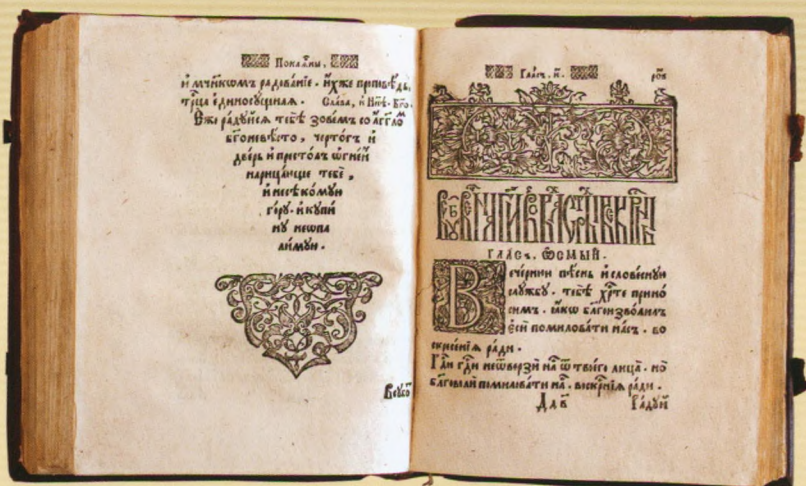 Покаѧ́ны.
и҆ мч҃нкѡмъ ра́дованїе. и҆́хже при́повѣдь,
трⷪ҇ца є҆диносꙋ́щнаѧ. Сла́ва, и҆ ны́нѣ. Бг҃о.
Е҆же ра́дꙋйсѧ тебѣ̀ зове́мъ со а҆́гг҃ломъ
бг҃оневѣ́сто, черто́гъ и҆
две́рь и҆ престо́лъ ѻ҆́гнен
нарица́юще тебѐ,
и҆ несѣко́мꙋю
го́рꙋ. и҆ кꙋпи
нꙋ̀ неѡпа
ли́мꙋю.
Гла́съ. и҃.
гла́съ. ѻ҆смы́й.
Вече́рнюю пѣ́снь и҆ слове́снꙋю
слꙋ́жбꙋ. тебѣ̀ хрⷭ҇тѐ прино
симъ. ꙗ҆́кѡ бл҃гоизво́лилъ
є҆сѝ поми́ловати на́съ. во
скресе́нїѧ ра́ди.
Гдⷭ҇и гдⷭ҇и не ѿве́рзи на́съ ѿ твоегѡ̀ лица̀. но
бл҃говолѝ поми́ловати на́съ. воскрⷭ҇нїѧ ра́ди.
Ра́дꙋй